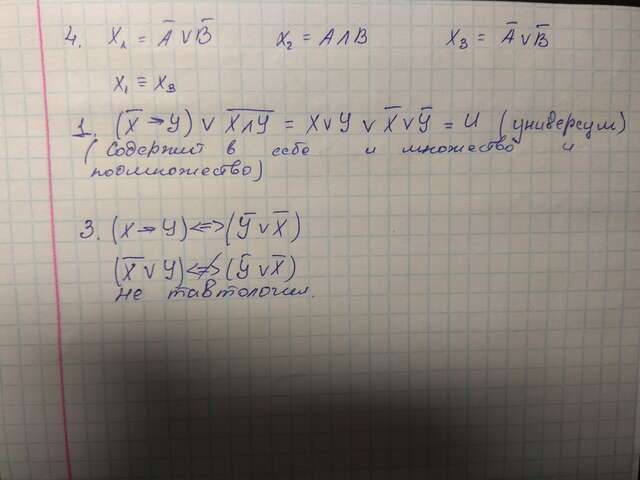 4. X₁ = A̅ ∨ B̅ X₂ = A ∧ B X₃ = A̅ ∨ B̅
X₁ ≡ X₃
1. (X̅ → Y) ∨ X̅ ̅∧̅ ̅Y̅ = X ∨ Y ∨ X̅ ∨ Y̅ = И (универсум)
(Содержит в себе и множество и
подмножество)
3. (X → Y) <=> (Y̅ ∨ X̅)
(X̅ ∨ Y) <≠> (Y̅ ∨ X̅)
не тавтология.